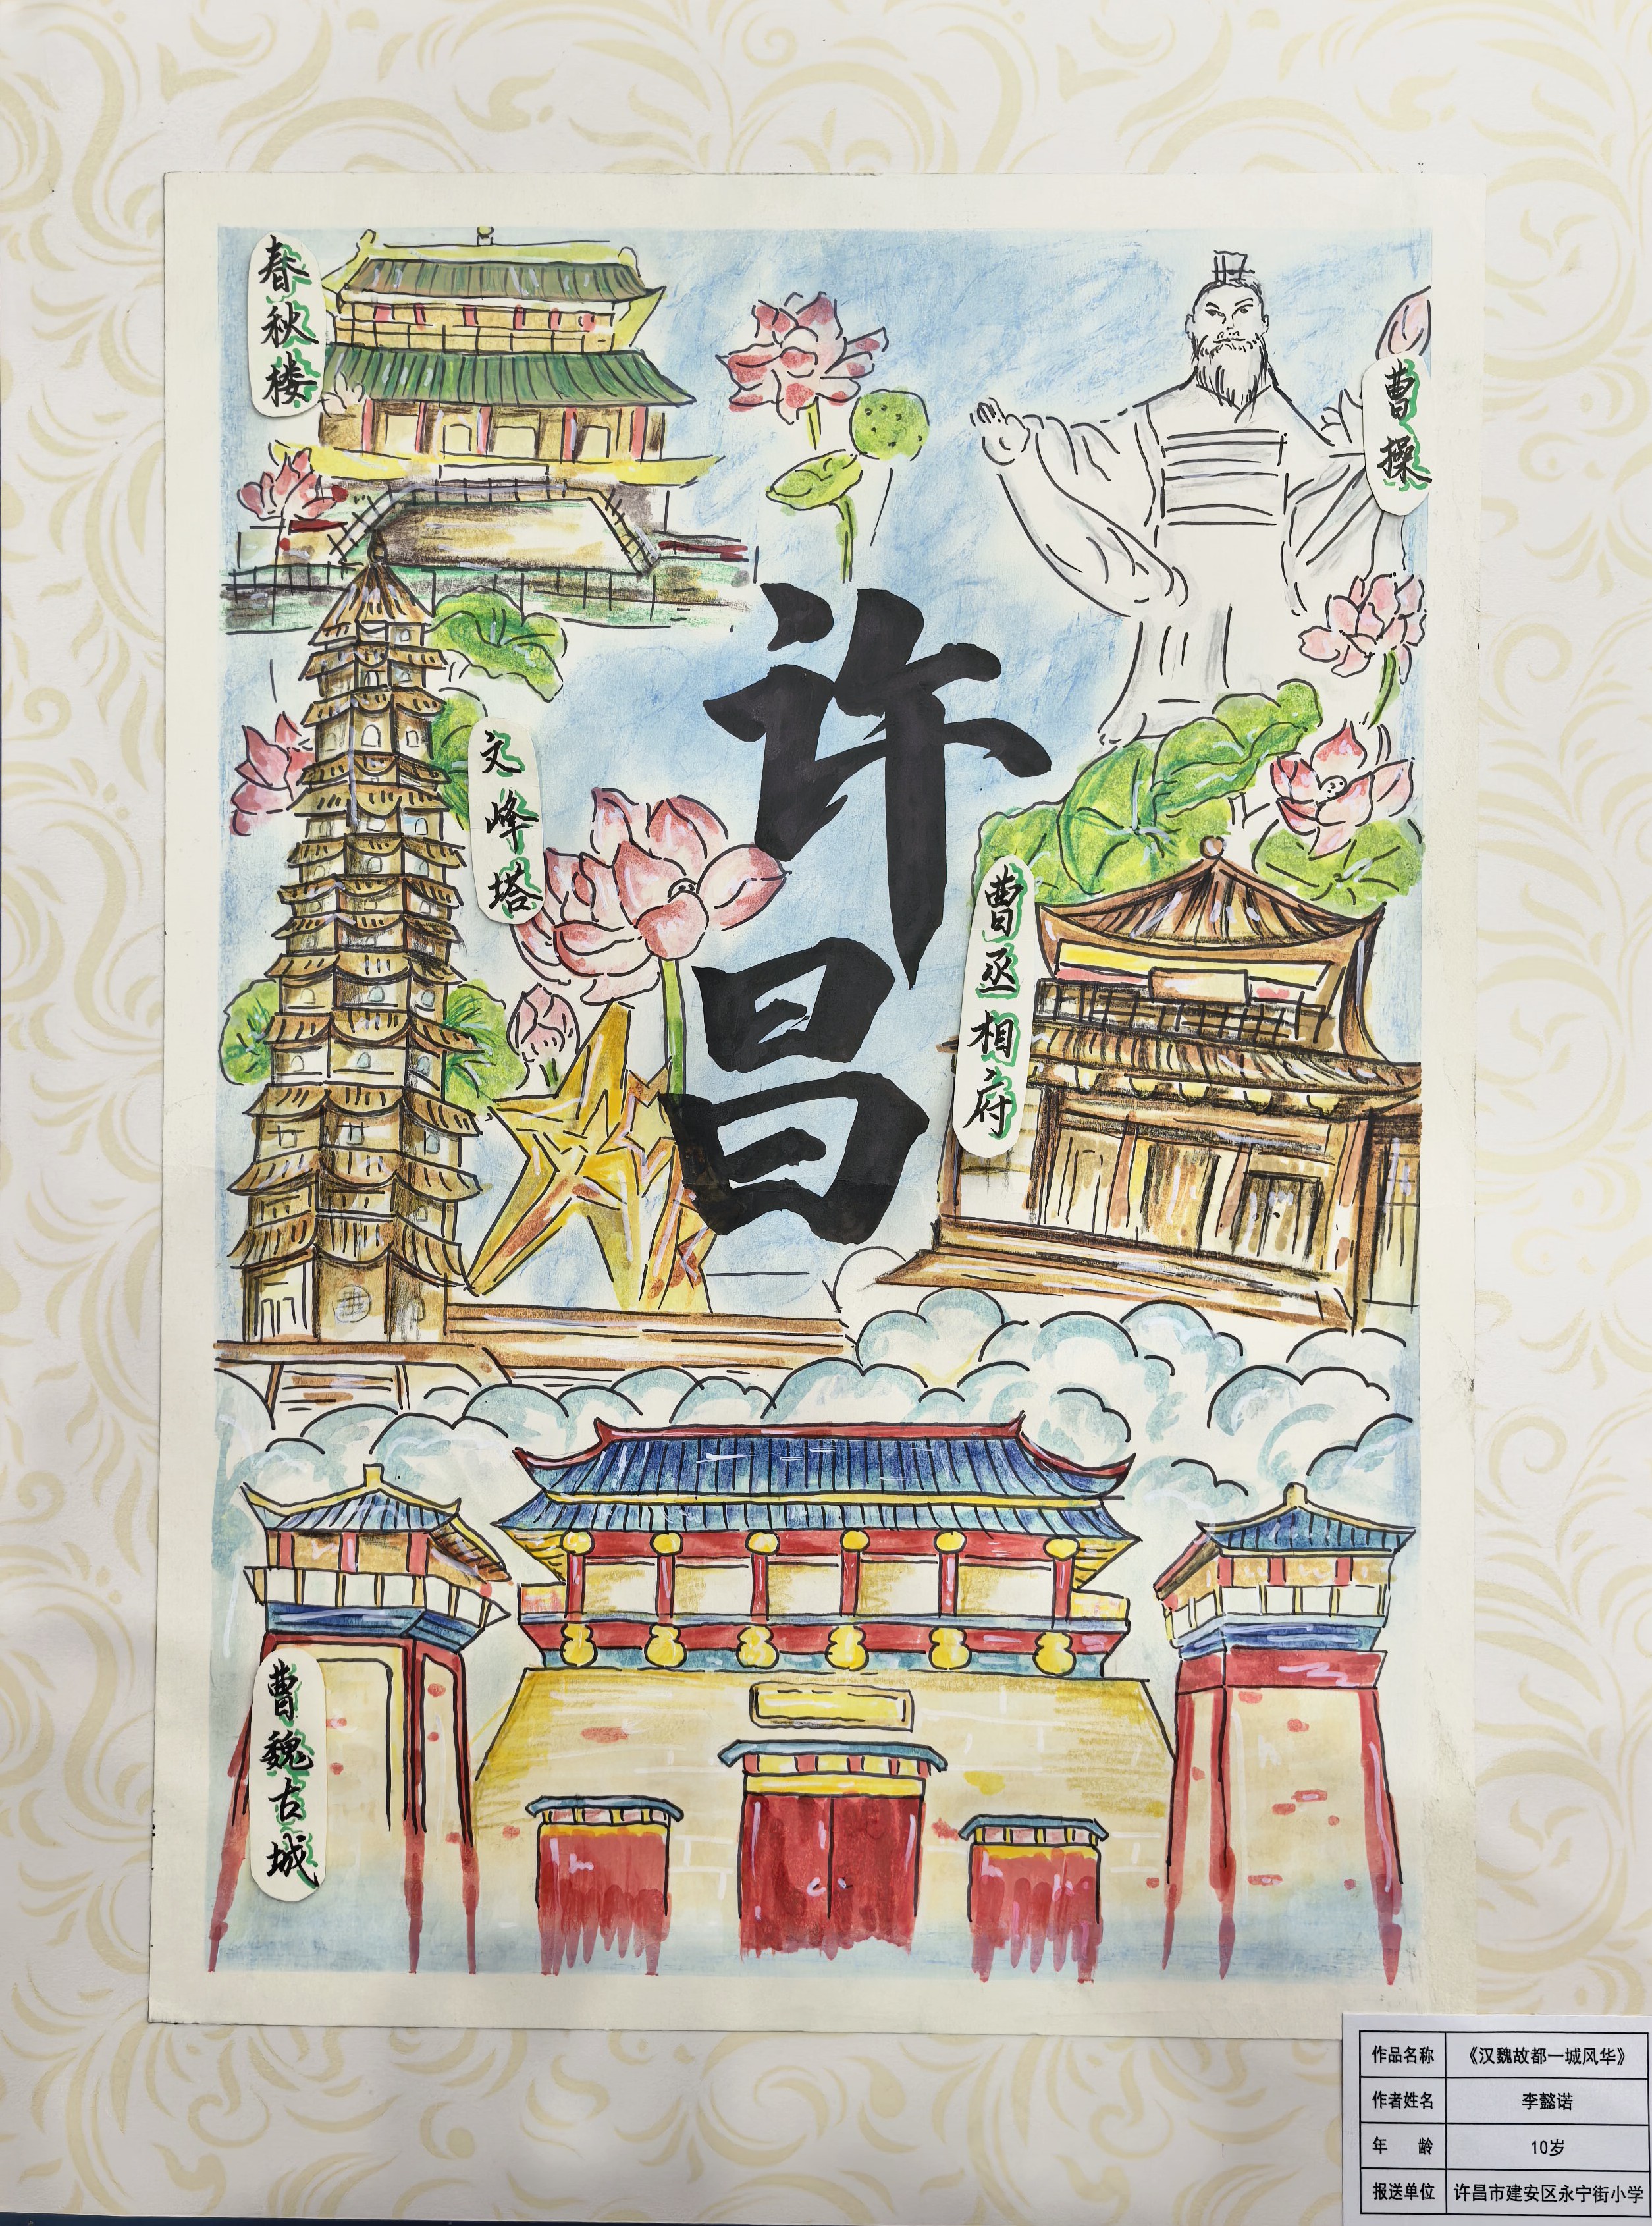 春秋楼
曹操
许昌
文峰塔
曹丞相府
曹魏古城
作品名称 《汉魏故都一城风华》
作者姓名 李懿诺
年 龄 10岁
报送单位 许昌市建安区永宁街小学